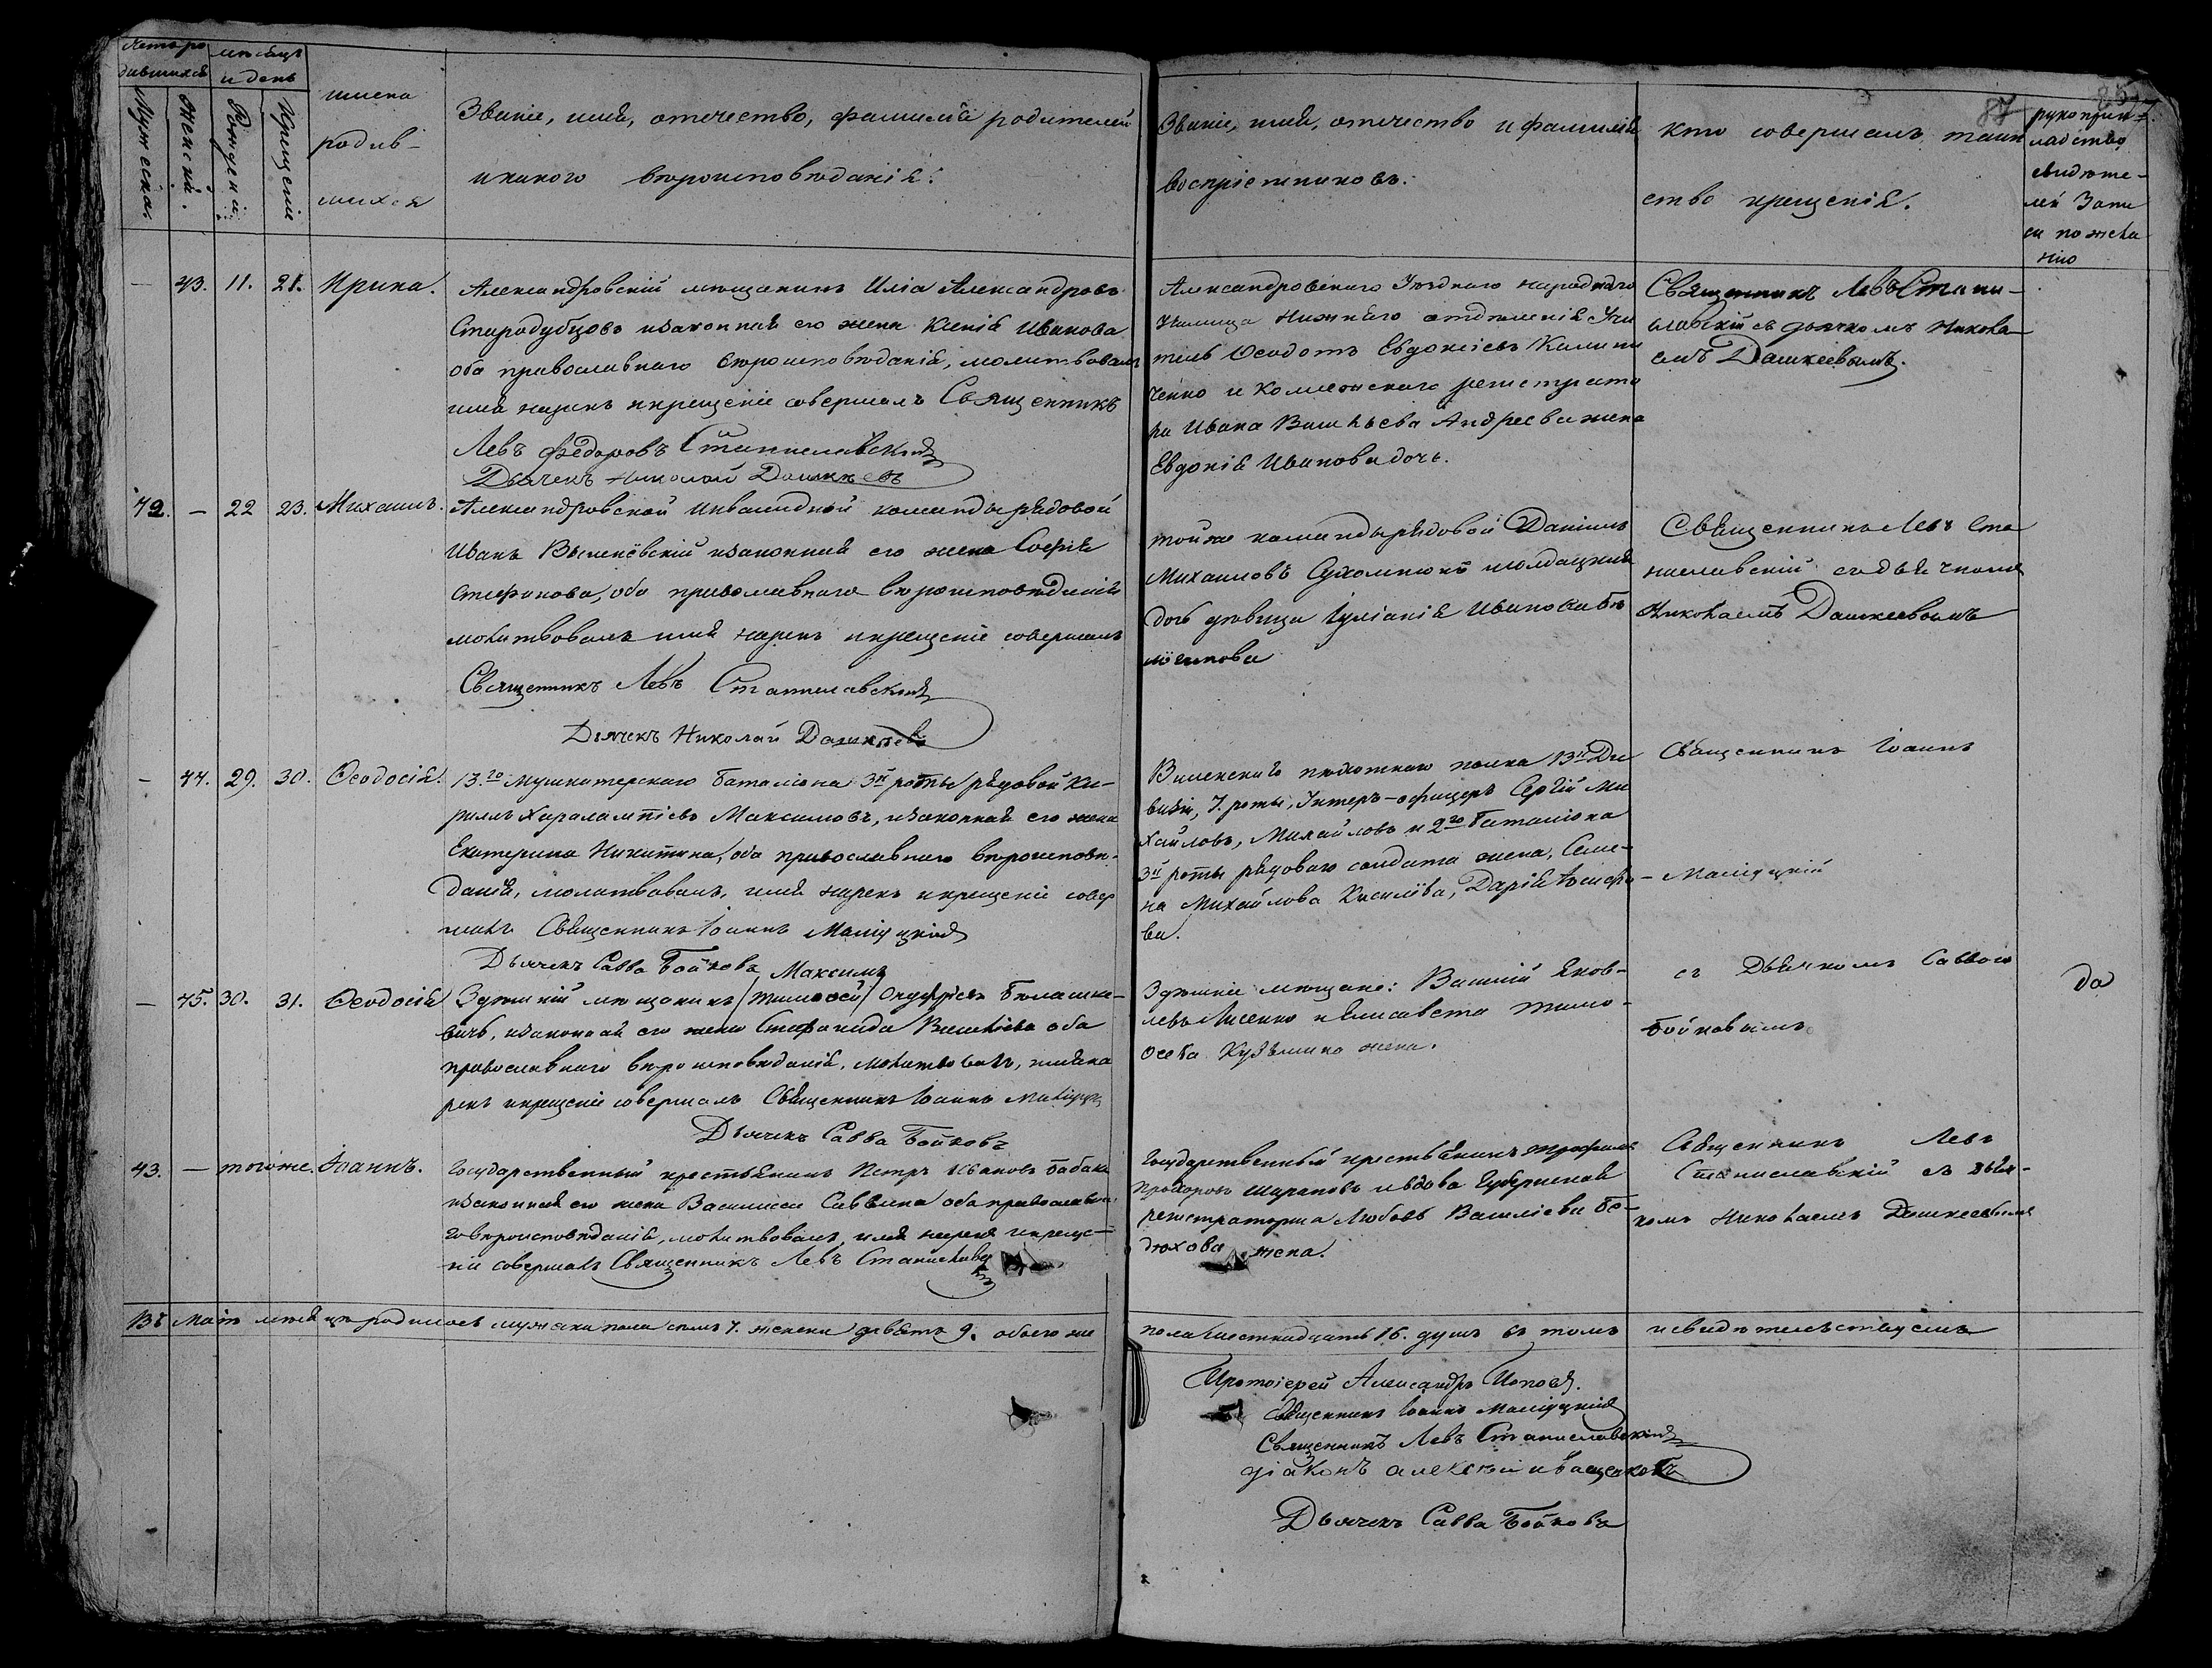 87
Счетъ ро
дившихся
мѣсяцъ
и день
Мужеска.
Женскій.
Рожденія
Крещенія
имена
родив-
шихся
Званіе, имя, отечество, фамилія родителей
и какого вѣроисповѣданія.
Званіе, имя, отечество и фамилія
воспріемниковъ.
кто совершалъ таин
ство крещенія.
рукоприк-
ладство
свидѣте-
лей Запи
си по жела
нию
— 43. 11. 21. Ирина.
Александровскій мѣщанинъ Иліа Александровъ
Стародубцовъ изаконная его жена Ксенія Иванова
оба православнаго вѣроисповѣданія, молитвовалъ
имя нарекъ икрещеніе совершалъ Священникъ
Левъ Федоровъ Станиславскій
Дьячекъ Николай Дашкеевъ
Александровскаго Уѣзднаго народнаго
училища нижняго отдѣленія Учи
тель Ѳеодотъ Евдокіевъ Калини
ченко и Коллежскаго регистрато
ра Ивана Васильева Андреева жена
Евдокія Иванова дочь.
Священникъ Левъ Стани-
славскій съ дьячкомъ Никола-
емъ Дашкеевымъ.
42. — 22 23. Михаилъ.
Александровской инвалидной команды рядовой
Иванъ изаконная его жена Софія
Стефанова, оба православнаго вѣроисповѣданія
молитвовалъ имя нарекъ икрещеніе совершалъ
Священникъ Левъ Станиславскій
Дьячекъ Николай Дашкеевъ
тойже команды рядовой Даніилъ
Михаиловъ
дочь дѣвица Іуліанія Иванова
Священникъ Левъ Ста
ниславскій съ дьячкомъ
Николаемъ Дашкеевымъ
— 44. 29. 30. Ѳеодосія.
13.го Мушкатерскаго баталіона 3й роты рядовой Ки-
рилъ Харалампіевъ Максимовъ, изаконная его жена
Екатерина Никитина, оба православнаго вѣроисповѣ-
данія, молитвовалъ, имя нарекъ икрещеніе совер
шалъ Священникъ Іоаннъ
Дьячекъ Савва Бойковъ
Виленскаго пѣхотнаго полка 13й Ди
визіи, 7. роты, Унтеръ-офицеръ Сергій Ми
хайловъ, Михайловъ и 2го баталіона
3й роты рядоваго солдата жена, Семе-
на Михайлова Киселіова, Дарія Іосифо
ва.
Священникъ Іоаннъ
съ Дьячкомъ Саввою
Бойковымъ
— 45. 30. 31. Ѳеодосія
Максимъ
Здѣшній мѣщанинъ /Тимоѳей/ Онуфріевъ
вичъ, изаконная его жена Стефанида Васильева оба
православнаго вѣроисповѣданія, молитвовалъ, имя на
рекъ икрещеніе совершалъ Священникъ Іоаннъ
Дьячекъ Савва Бойковъ
Здѣшніе мѣщане: Василій Яков-
левъ Лисенко и Елисавета Тимо-
ѳеева Кузьмина жена.
да
43. — тогоже. Іоаннъ.
Государственный крестьянинъ Петръ Ивановъ Бабака
изаконная его жена Василиса Саввина оба православна
го вѣроисповѣданія, молитвовалъ, имя нарекъ икреще-
ніе совершалъ Священникъ Левъ Станиславскій
Государственный крестьянинъ Трофимъ
Прохоровъ Шараповъ и вдова Губернская
регистраторша Любовь Василіева Бе-
дюхова жена.
Священникъ Левъ
Станиславскій съ дьяч-
комъ Николаемъ Дашкеевымъ
Въ Маіѣ мѣсяцѣ родилось мужеска пола семь 7. женска девять 9. обоего же
пола шестнадцать 16. душъ въ томъ и свидѣтельствуемъ
Протоіерей Александръ Поповъ.
Священникъ Іоаннъ
Священникъ Левъ Станиславскій
діаконъ алексѣй иващенковъ
Дьячекъ Савва Бойковъ